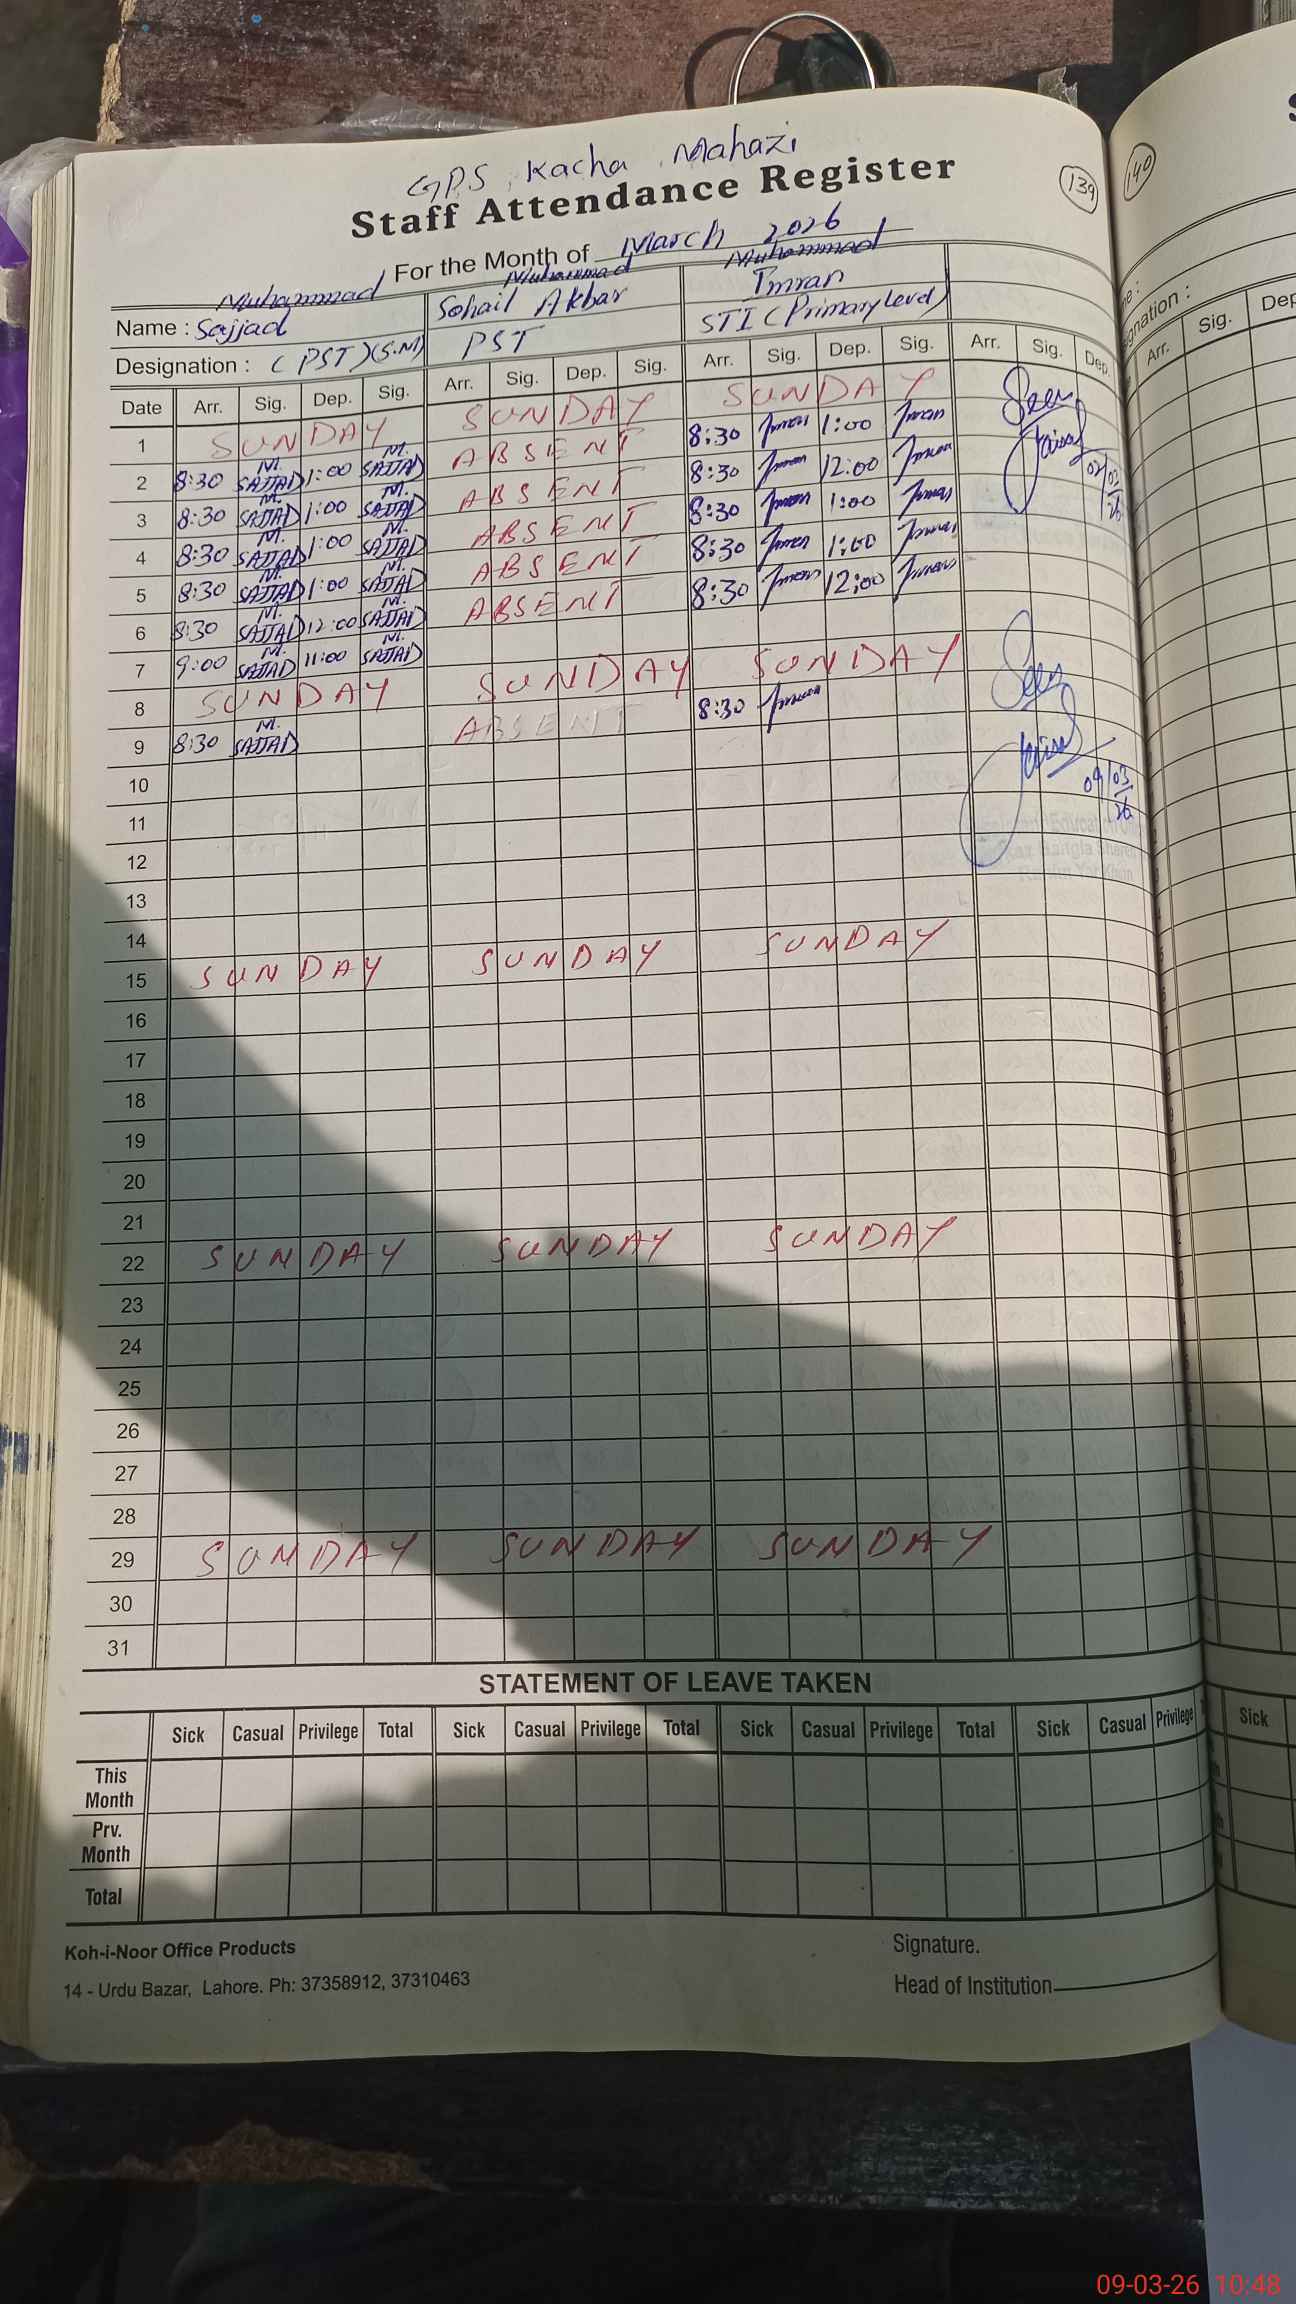 GPS, Kacha Mahazi
Staff Attendance Register
139
140
For the Month of March 2026
Name : Muhammad Sajjad Muhammad Sohail Akbar Muhammad Imran
Designation : (PST)(S.M) PST STI (Primary Level)
Date Arr. Sig. Dep. Sig. Arr. Sig. Dep. Sig. Arr. Sig. Dep. Sig. Arr. Sig. Dep.
1 SUNDAY SUNDAY SUNDAY
2 8:30 M. SAJJAD 1:00 M. SAJJAD ABSENT 8:30 Imran 1:00 Imran
3 8:30 M. SAJJAD 1:00 M. SAJJAD ABSENT 8:30 Imran 12:00 Imran
4 8:30 M. SAJJAD 1:00 M. SAJJAD ABSENT 8:30 Imran 1:00 Imran
5 8:30 M. SAJJAD 1:00 M. SAJJAD ABSENT 8:30 Imran 1:00 Imran
6 8:30 M. SAJJAD 12:00 M. SAJJAD ABSENT 8:30 Imran 12:00 Imran
7 9:00 M. SAJJAD 11:00 M. SAJJAD
8 SUNDAY SUNDAY SUNDAY
9 8:30 M. SAJJAD ABSENT 8:30 Imran
Seen
02/03/26
Seen
09/03/26
10
11
12
13
14
15 SUNDAY SUNDAY SUNDAY
16
17
18
19
20
21
22 SUNDAY SUNDAY SUNDAY
23
24
25
26
27
28
29 SUNDAY SUNDAY SUNDAY
30
31
STATEMENT OF LEAVE TAKEN
Sick Casual Privilege Total Sick Casual Privilege Total Sick Casual Privilege Total Sick Casual Privilege
This Month
Prv. Month
Total
Koh-i-Noor Office Products
14 - Urdu Bazar, Lahore. Ph: 37358912, 37310463
Signature.
Head of Institution
Arr. Sig. Dep
Sick
09-03-26 10:48